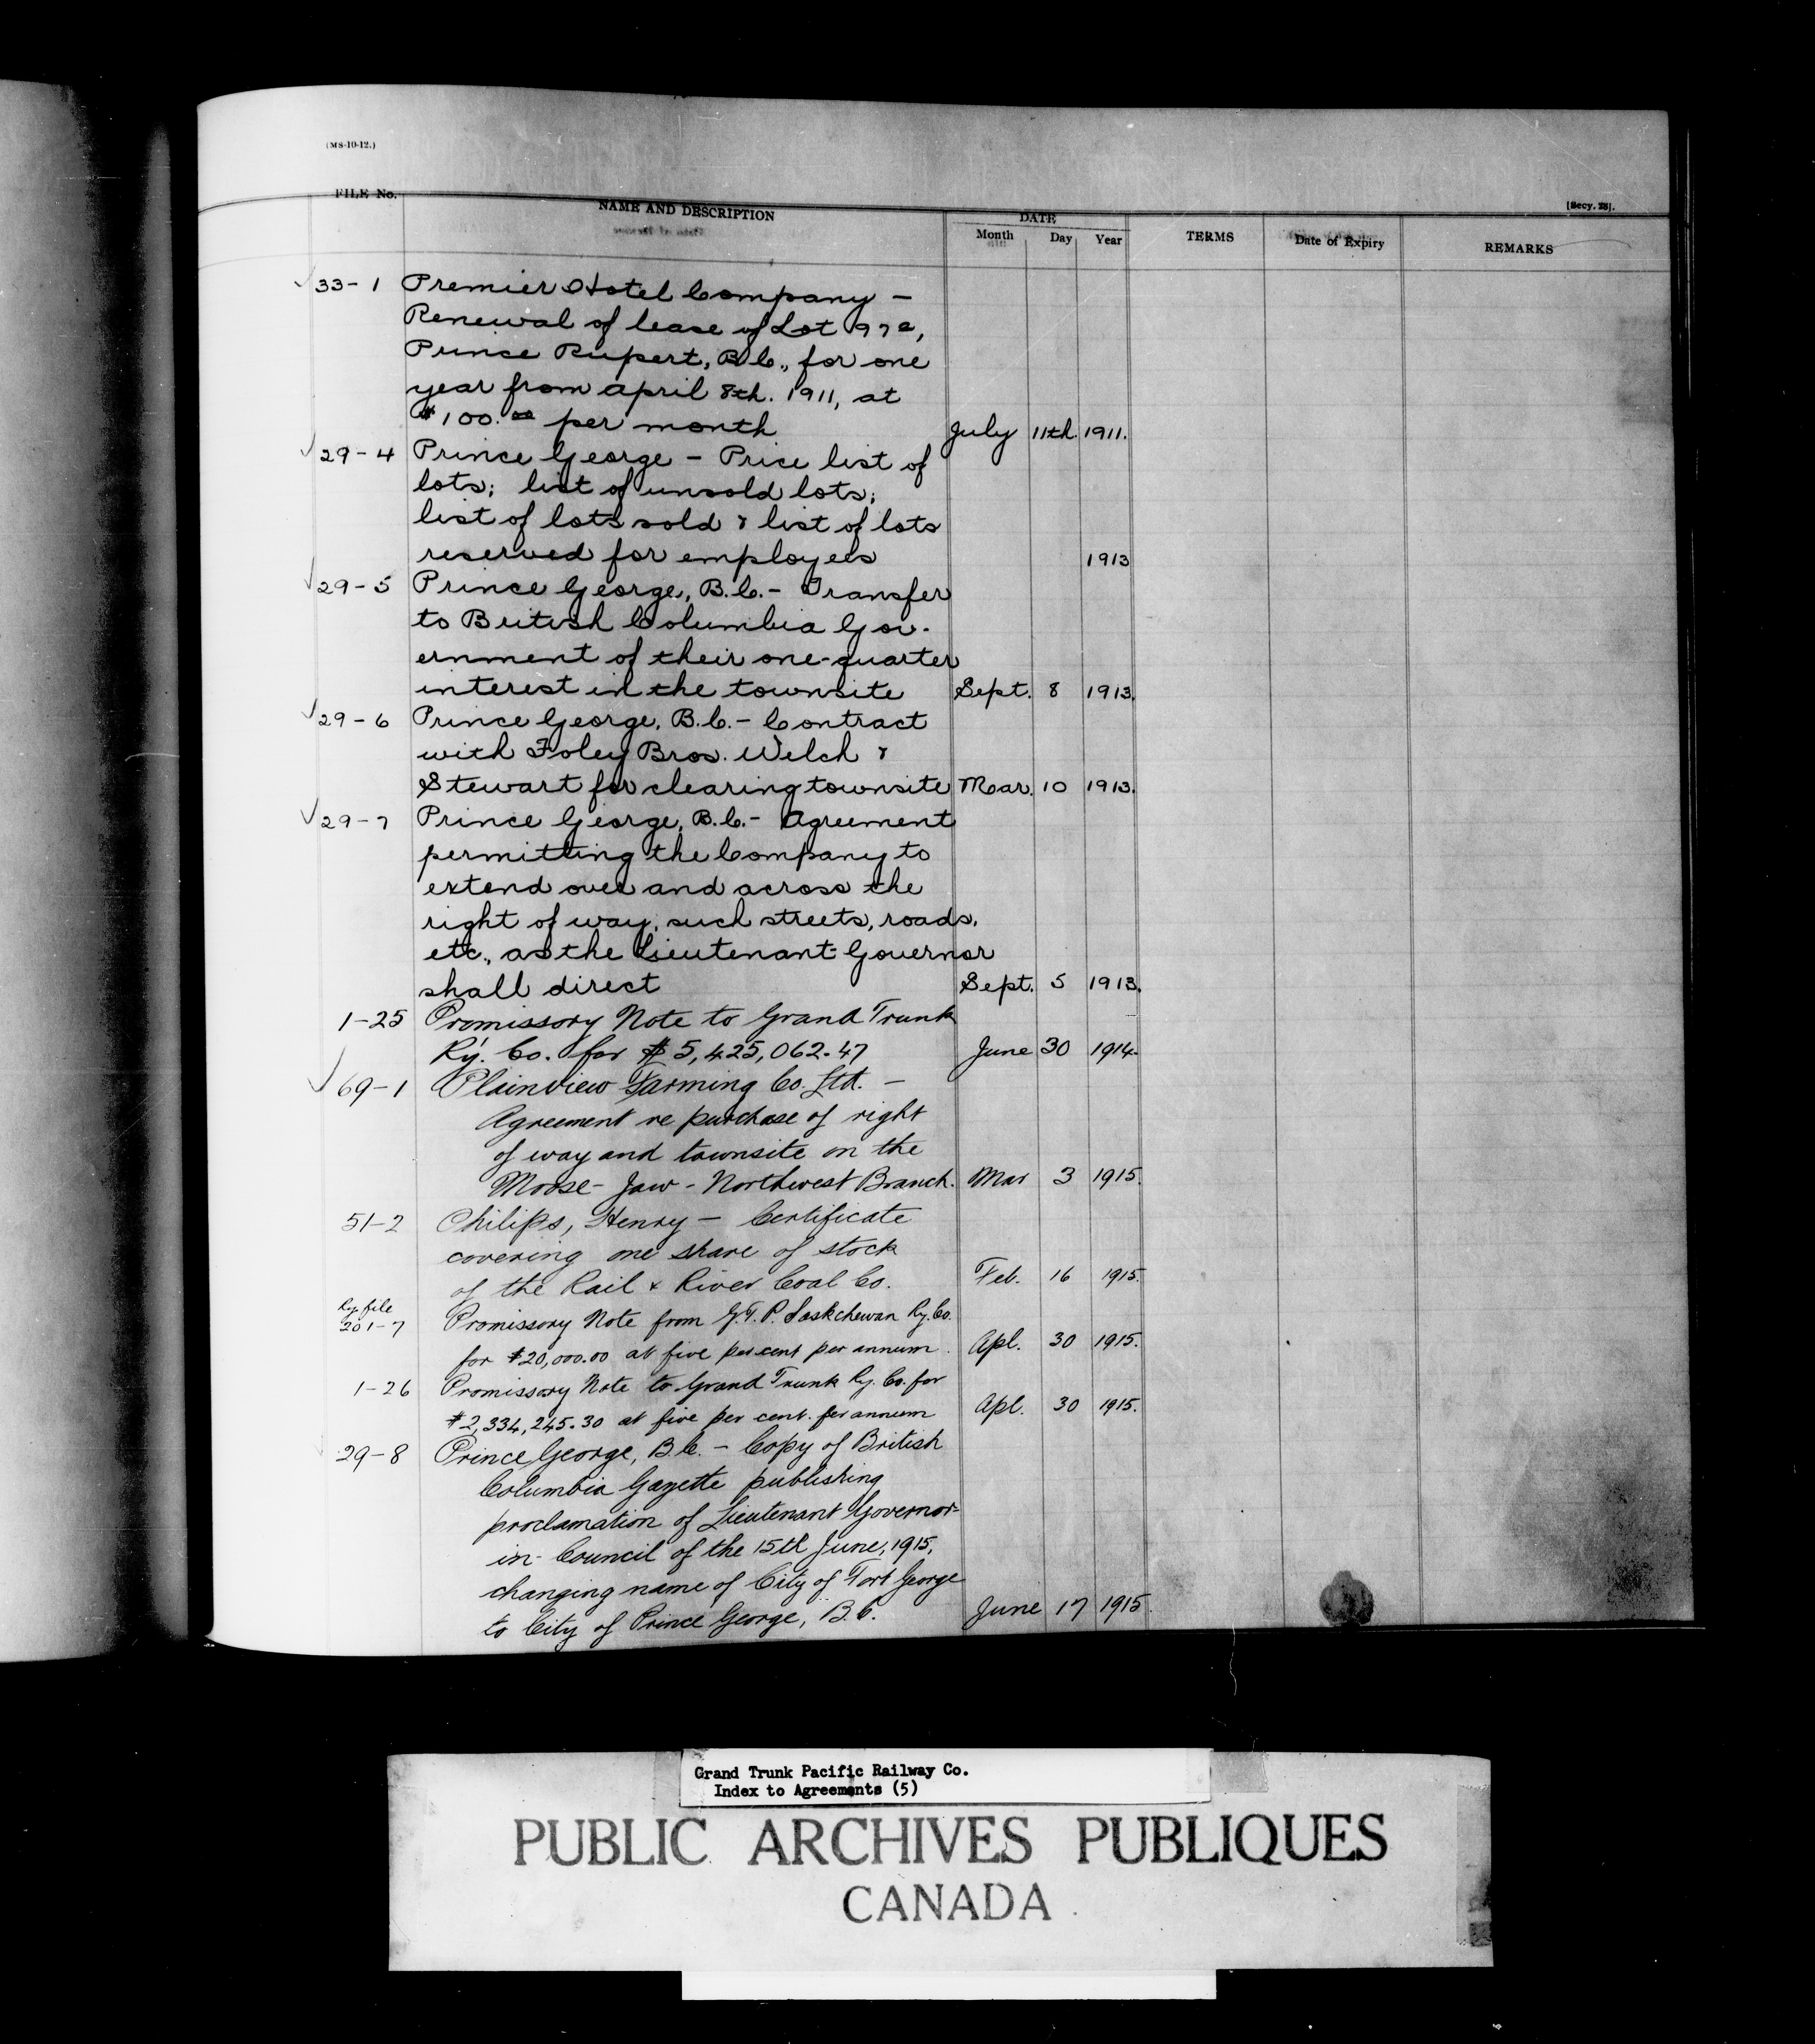 (MS-10-12.)
[Secy. 28].
FILE No. NAME AND DESCRIPTION DATE TERMS Date of Expiry REMARKS
Month Day Year
33-1 Premier Hotel Company -
Renewal of lease of Lot 97a,
Prince Rupert, B.C., for one
year from April 8th. 1911, at
$100.00 per month July 11th. 1911.
29-4 Prince George - Price list of
lots; list of unsold lots;
list of lots sold & list of lots
reserved for employees 1913
29-5 Prince George, B.C. - Transfer
to British Columbia Gov-
ernment of their one-quarter
interest in the townsite Sept. 8 1913.
29-6 Prince George, B.C. - Contract
with Foley Bros. Welch &
Stewart for clearing townsite Mar. 10 1913.
29-7 Prince George, B.C. - Agreement
permitting the Company to
extend over and across the
right of way, such streets, roads,
etc., as the Lieutenant-Governor
shall direct Sept. 5 1913.
1-25 Promissory Note to Grand Trunk
Ry. Co. for $5,425,062.47 June 30 1914.
69-1 Plainview Farming Co. Ltd. -
Agreement re purchase of right
of way and townsite on the
Moose-Jaw-Northwest Branch. Mar 3 1915.
51-2 Philips, Henry - Certificate
covering one share of stock
of the Rail & River Coal Co. Feb. 16 1915.
Ry. file
201-7 Promissory Note from G.T.P. Saskchewan Ry. Co.
for $20,000.00 at five per cent per annum. Apl. 30 1915.
1-26 Promissory Note to Grand Trunk Ry. Co. for
$2,334,245.30 at five per cent. per annum Apl. 30 1915.
29-8 Prince George, B.C. - Copy of British
Columbia Gazette publishing
proclamation of Lieutenant Governor-
in-Council of the 15th June, 1915,
changing name of City of Fort George
to City of Prince George, B.C. June 17 1915.
Grand Trunk Pacific Railway Co.
Index to Agreements (5)
PUBLIC ARCHIVES PUBLIQUES
CANADA